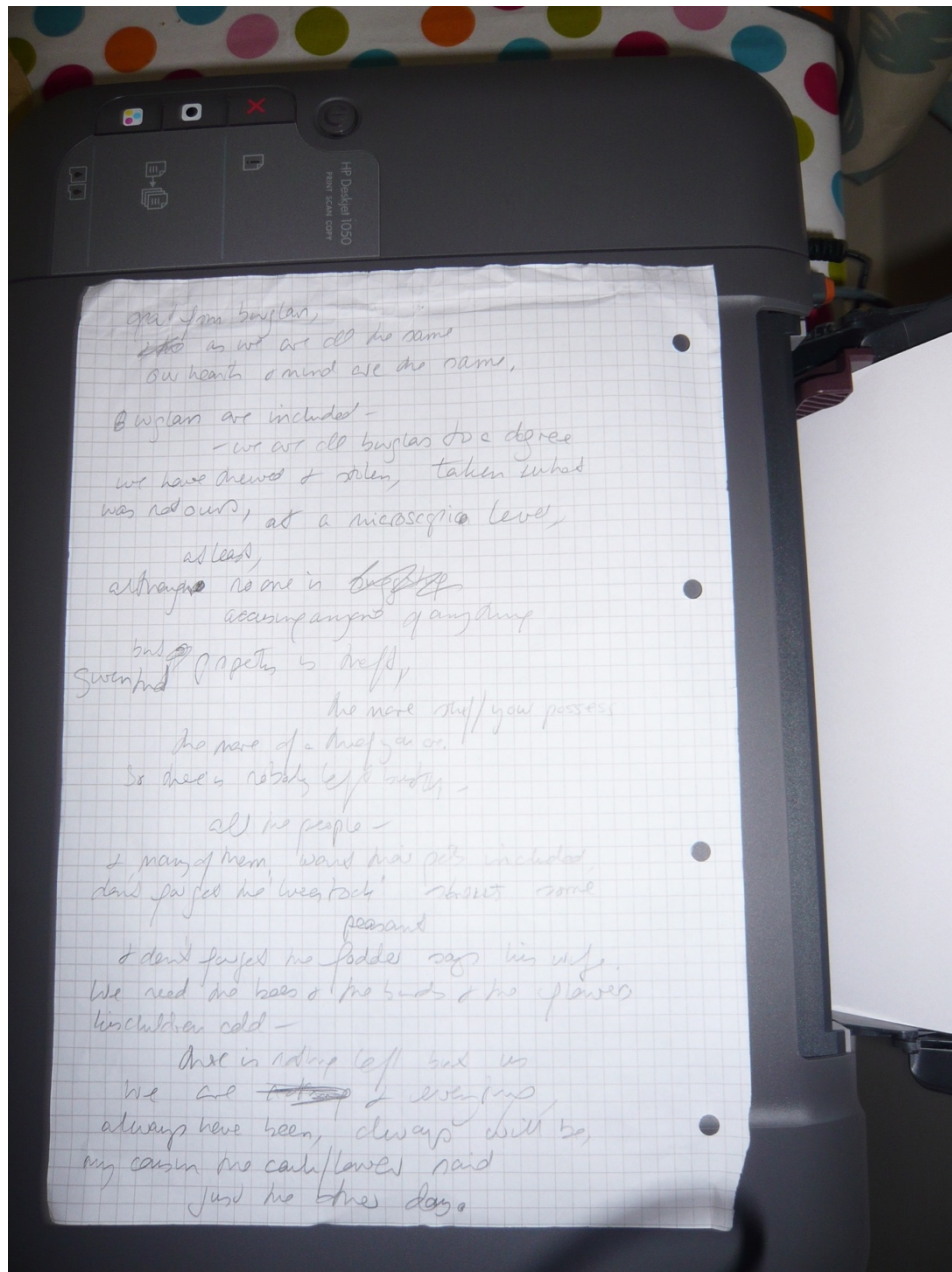 HP Deskjet 1050
PRINT SCAN COPY
burglars,
as we are all the same
our hearts & mind are the same,
Burglars are included -
- we are all burglars to a degree
we have thieved & stolen, taken what
was not ours, at a microscopic level,
at least,
although no one is
accusing anyone of anything
but property is theft,
the more stuff you possess
the more of a thief you are.
So there is nobody left
all the people -
& many of them want their pets included,
don't forget the livestock shouts some
peasant
& don't forget the fodder says his wife.
We need the bees & the birds & the flowers
his children add -
there is nothing left but us
We are & everyone,
always have been, always will be,
my cousin the cauliflower said
just the other day.